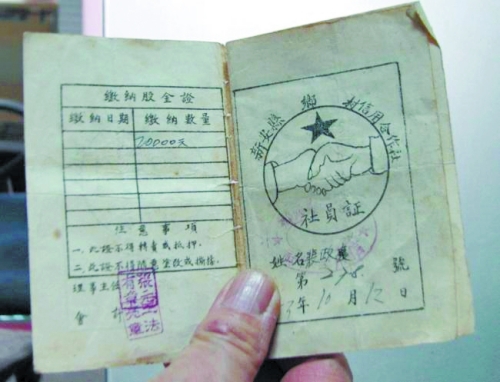 繳納股金證
繳納日期 繳納數量
20000元
注意事項
一.此證不得轉賣或抵押.
二.此證不得隨意塗改或撕揭.
理事主任
會計
新安縣 鄉 村信用合作社
社員証
姓名 張政
第 號
年10月12日